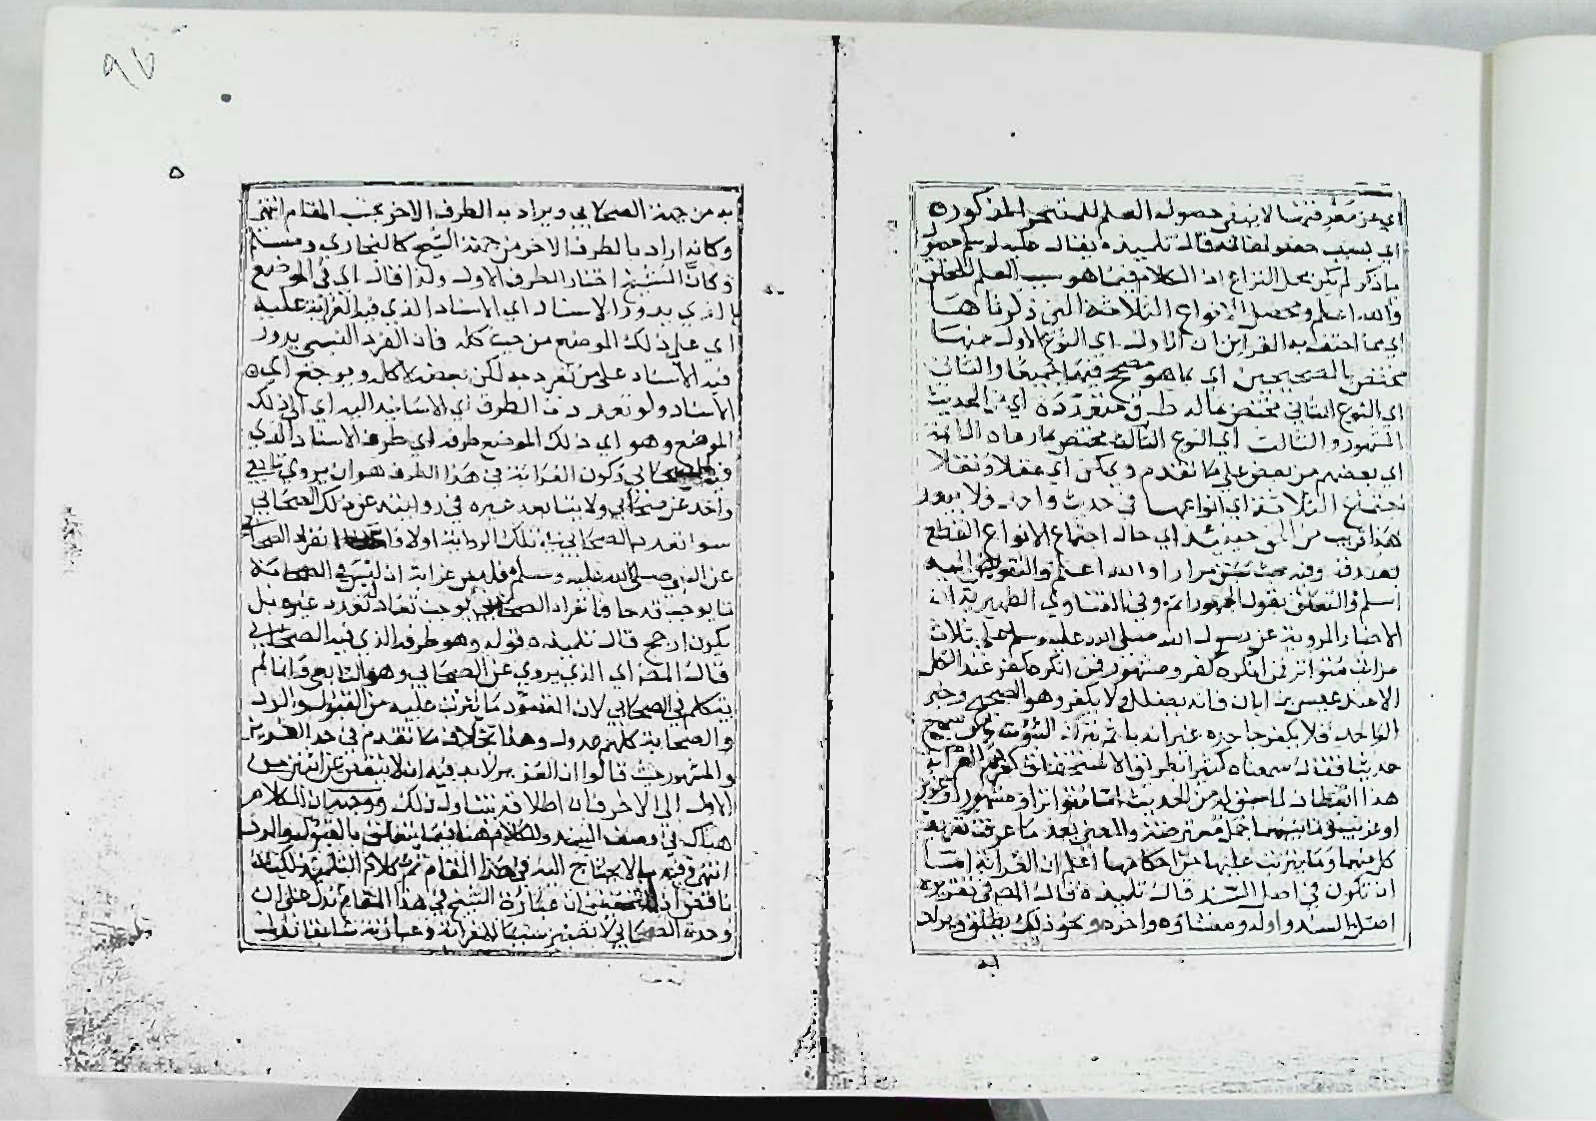 اي عن معرفتها لا ينفي حصول العلم للمتبحر المذكور
اي بسبب حفظ قال تلميذه يقال عليه حصول
ما ذكر لم يكن محل النزاع اذ الكلام فيما هو سبب العلم للخلق
والله اعلم ومحصل الانواع الثلاثة التي ذكرناها
اي مما احتف به القراين ان الاول اي النوع الاول منها
مختص بالصحيحين اي بما هو مصحح فيهما جميعا والثاني
اي النوع الثاني مختص بما له طرق متعددة اي الحديث
المشهور والثالث اي النوع الثالث مختص بما رواه الايمة
اي بعضهم من بعض على ما تقدم ويمكن اي عقلا ونقلا
اجتماع الثلاثة اي انواعها في حديث واحد فلا يبعد
هذا قريب من المتن حينئذ اي حال اجتماع الانواع القطع
بصدقه وفيه بحث سبق مرارا والله اعلم والتفويض اليه
اسلم والتعلق بقول الجمهور اتم وفي الفتاوي الظهيرية ان
الاخبار المروية عن رسول الله صلى الله عليه وسلم على ثلاث
مراتب متواتر فمن انكره كفر ومشهور فمن انكره كفر عند الكل
الا عند عيسى بن ابان فانه يضلل ولا يكفر وهو الصحيح وخبر
الواحد فلا يكفر جاحده غير انه ياثم بترك القبول ومن سمع
حديثا فقال سمعناه كثيرا بطريق الاستخفاف كفر ثم الغرابة
هذا العطف لما سبق له من الحديث اما متواتر او مشهور او عزيز
او غريب في اثنيهما جمل معترضة والمعنى بعد ما عرفت تعريف
كل منهما وما يترتب عليها من احكامها اعلم ان الغرابة اما
ان تكون في اصل السند قال تلميذه قال المص في تقريره
اصل السند واوله ومنشاوه واخره ونحو ذلك يطلق ويراد
به
به من جهة الصحابي ويراد به الطرف الاخر بحسب المقام انتهى
وكانه اراد بالطرف الاخر من جهة الشيخ كالبخاري ومسلم
وكان الشيخ اختار الطرف الاول ولذا قال اي في الموضع
الذي يدور الاسناد اي الاسناد الذي فيه الغرابة عليه
اي على ذلك الموضع من حيث كله فان الفرد النسبي يدور
فيه الاسناد على من تفرد به لكن بعضه لا كله ويرجع اي
الاسناد ولو تعددت الطرق اي الاسانيد اليه اي الى ذلك
الموضع وهو اي ذلك الموضع طرفه اي طرف الاسناد الذي
فيه الصحابي وتكون الغرابة في هذا الطرف هو ان يروي تابعي
واحد عن صحابي ولا يتابعه غيره في روايته عن ذلك الصحابي
سوا تعدد الصحابي في تلك الرواية اولا فاما انفراد الصحابي
عن النبي صلى الله عليه وسلم فليس غرابة اذ ليس في الصحابة
ما يوجب قدحا فانفراد الصحابي يوجب تعادل تعدد غيره بل
يكون ارجح قال تلميذه قوله وهو طرفه الذي فيه الصحابي
قال المص اي الذي يروي عن الصحابي وهو التابعي وانما لم
يتكلم في الصحابي لان المقصود ما يترتب عليه من القبول والرد
والصحابة كلهم عدول وهذا بخلاف ما تقدم في حد العزيز
والمشهور حيث قالوا ان العزيز لا بد فيه ان لا ينقص عن اثنين من
الاول الى الاخر فان اطلاقه يتناول ذلك ووجهه ان الكلام
هناك في وصف السند والكلام هنا فيما يتعلق بالقبول والرد
انتهى وفيه ما لا يحتاج اليه في هذا المقام تم كلام التلميذ لكنه
ناقض اذ التحقيق ان عبارة الشيخ في هذا المقام تدل على ان
وحدة الصحابي لا تصير سببا للغرابة وعبارته سابقا